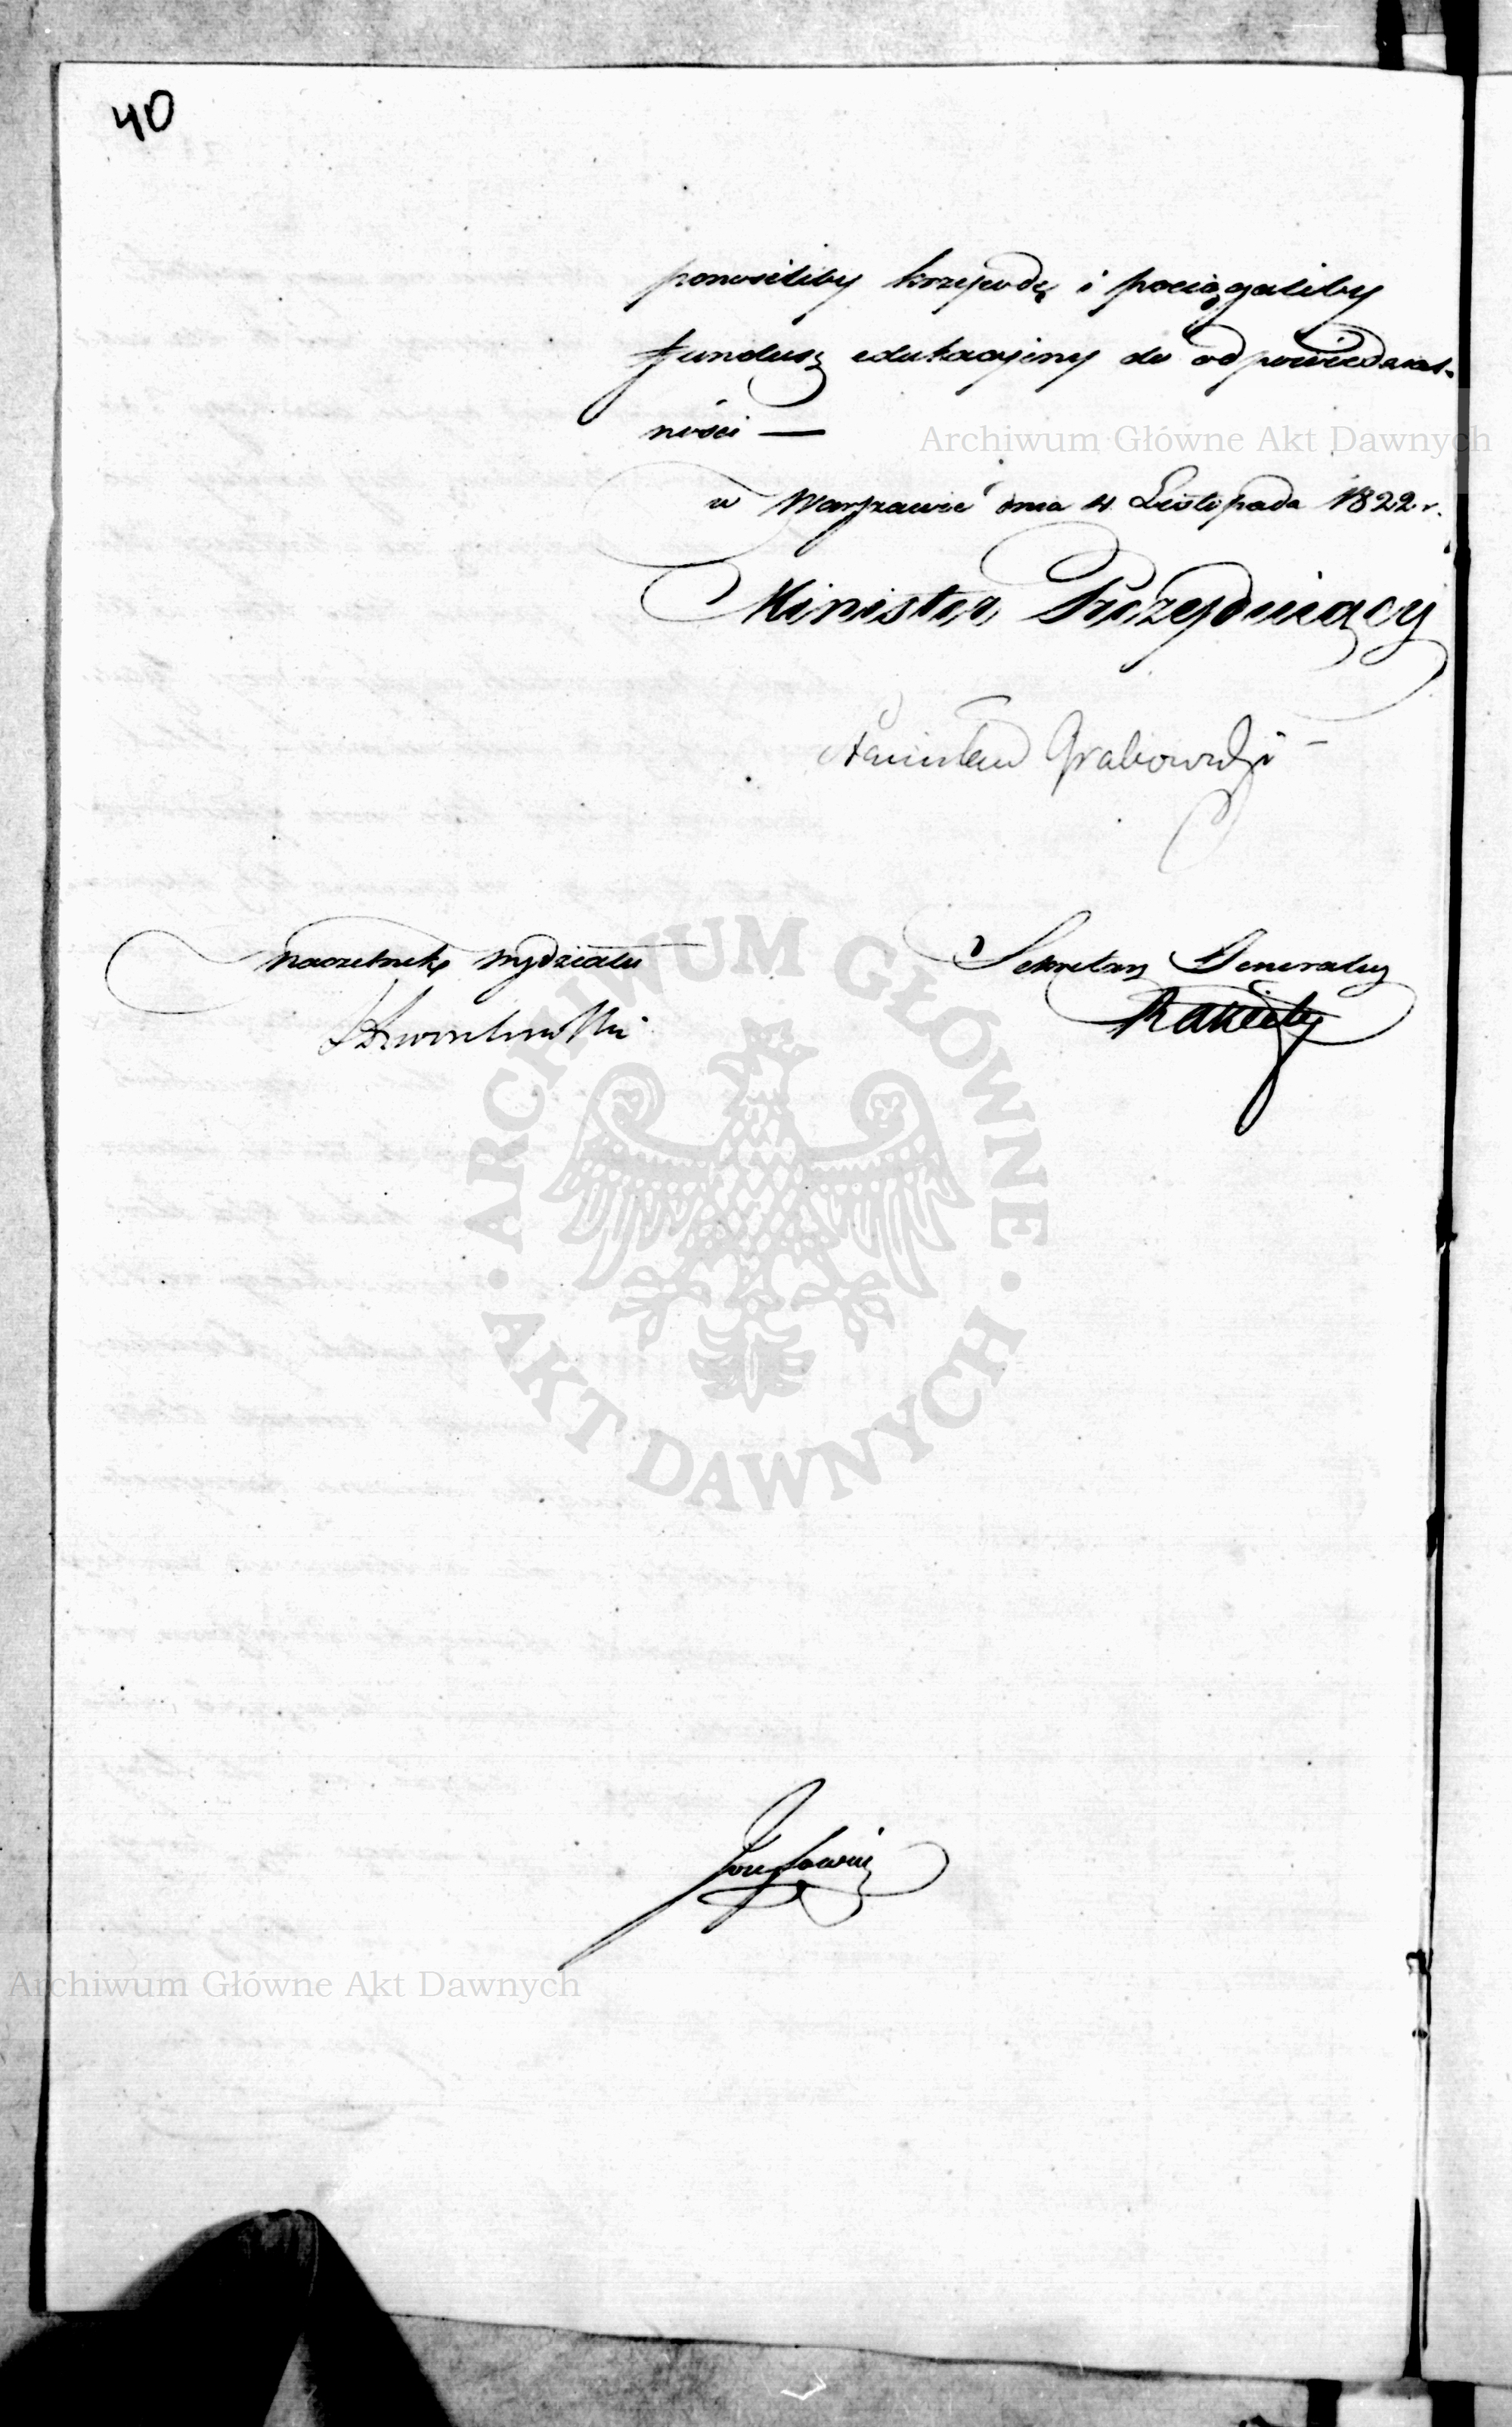 40
ponosiliby krzywdę i pociągaliby
fundusz edukacyiny do odpowiedzial-
ności —
w Warszawie dnia 4 Listopada 1822 r.
Minister Prezyduiący
Stanisław Grabowski
Naczelnik Wydziału
Sekretarz Generalny
Archiwum Główne Akt Dawnych
ARCHIWUM GŁÓWNE AKT DAWNYCH
Archiwum Główne Akt Dawnych